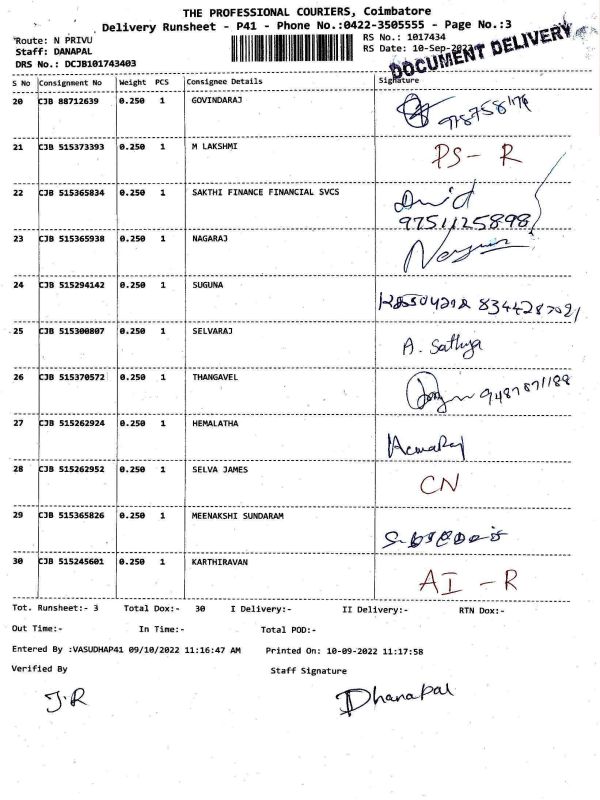 THE PROFESSIONAL COURIERS, Coimbatore
Delivery Runsheet - P41 - Phone No.:0422-3505555 - Page No.:3
Route: N PRIVU
Staff: DANAPAL
DRS No.: DCJB101743403
RS No.: 1017434
RS Date: 10-Sep-2022
DOCUMENT DELIVERY
S No Consignment No Weight PCS Consignee Details Signature
20 CJB 88712639 0.250 1 GOVINDARAJ
21 CJB 515373393 0.250 1 M LAKSHMI PS- R
22 CJB 515365834 0.250 1 SAKTHI FINANCE FINANCIAL SVCS
9751125898
23 CJB 515365938 0.250 1 NAGARAJ
24 CJB 515294142 0.250 1 SUGUNA
25 CJB 515300807 0.250 1 SELVARAJ A. Sathya
26 CJB 515370572 0.250 1 THANGAVEL
27 CJB 515262924 0.250 1 HEMALATHA
28 CJB 515262952 0.250 1 SELVA JAMES CN
29 CJB 515365826 0.250 1 MEENAKSHI SUNDARAM
30 CJB 515245601 0.250 1 KARTHIRAVAN AI - R
Tot. Runsheet:- 3 Total Dox:- 30 I Delivery:- II Delivery:- RTN Dox:-
Out Time:- In Time:- Total POD:-
Entered By :VASUDHAP41 09/10/2022 11:16:47 AM Printed On: 10-09-2022 11:17:58
Verified By Staff Signature
J.R Dhanapal